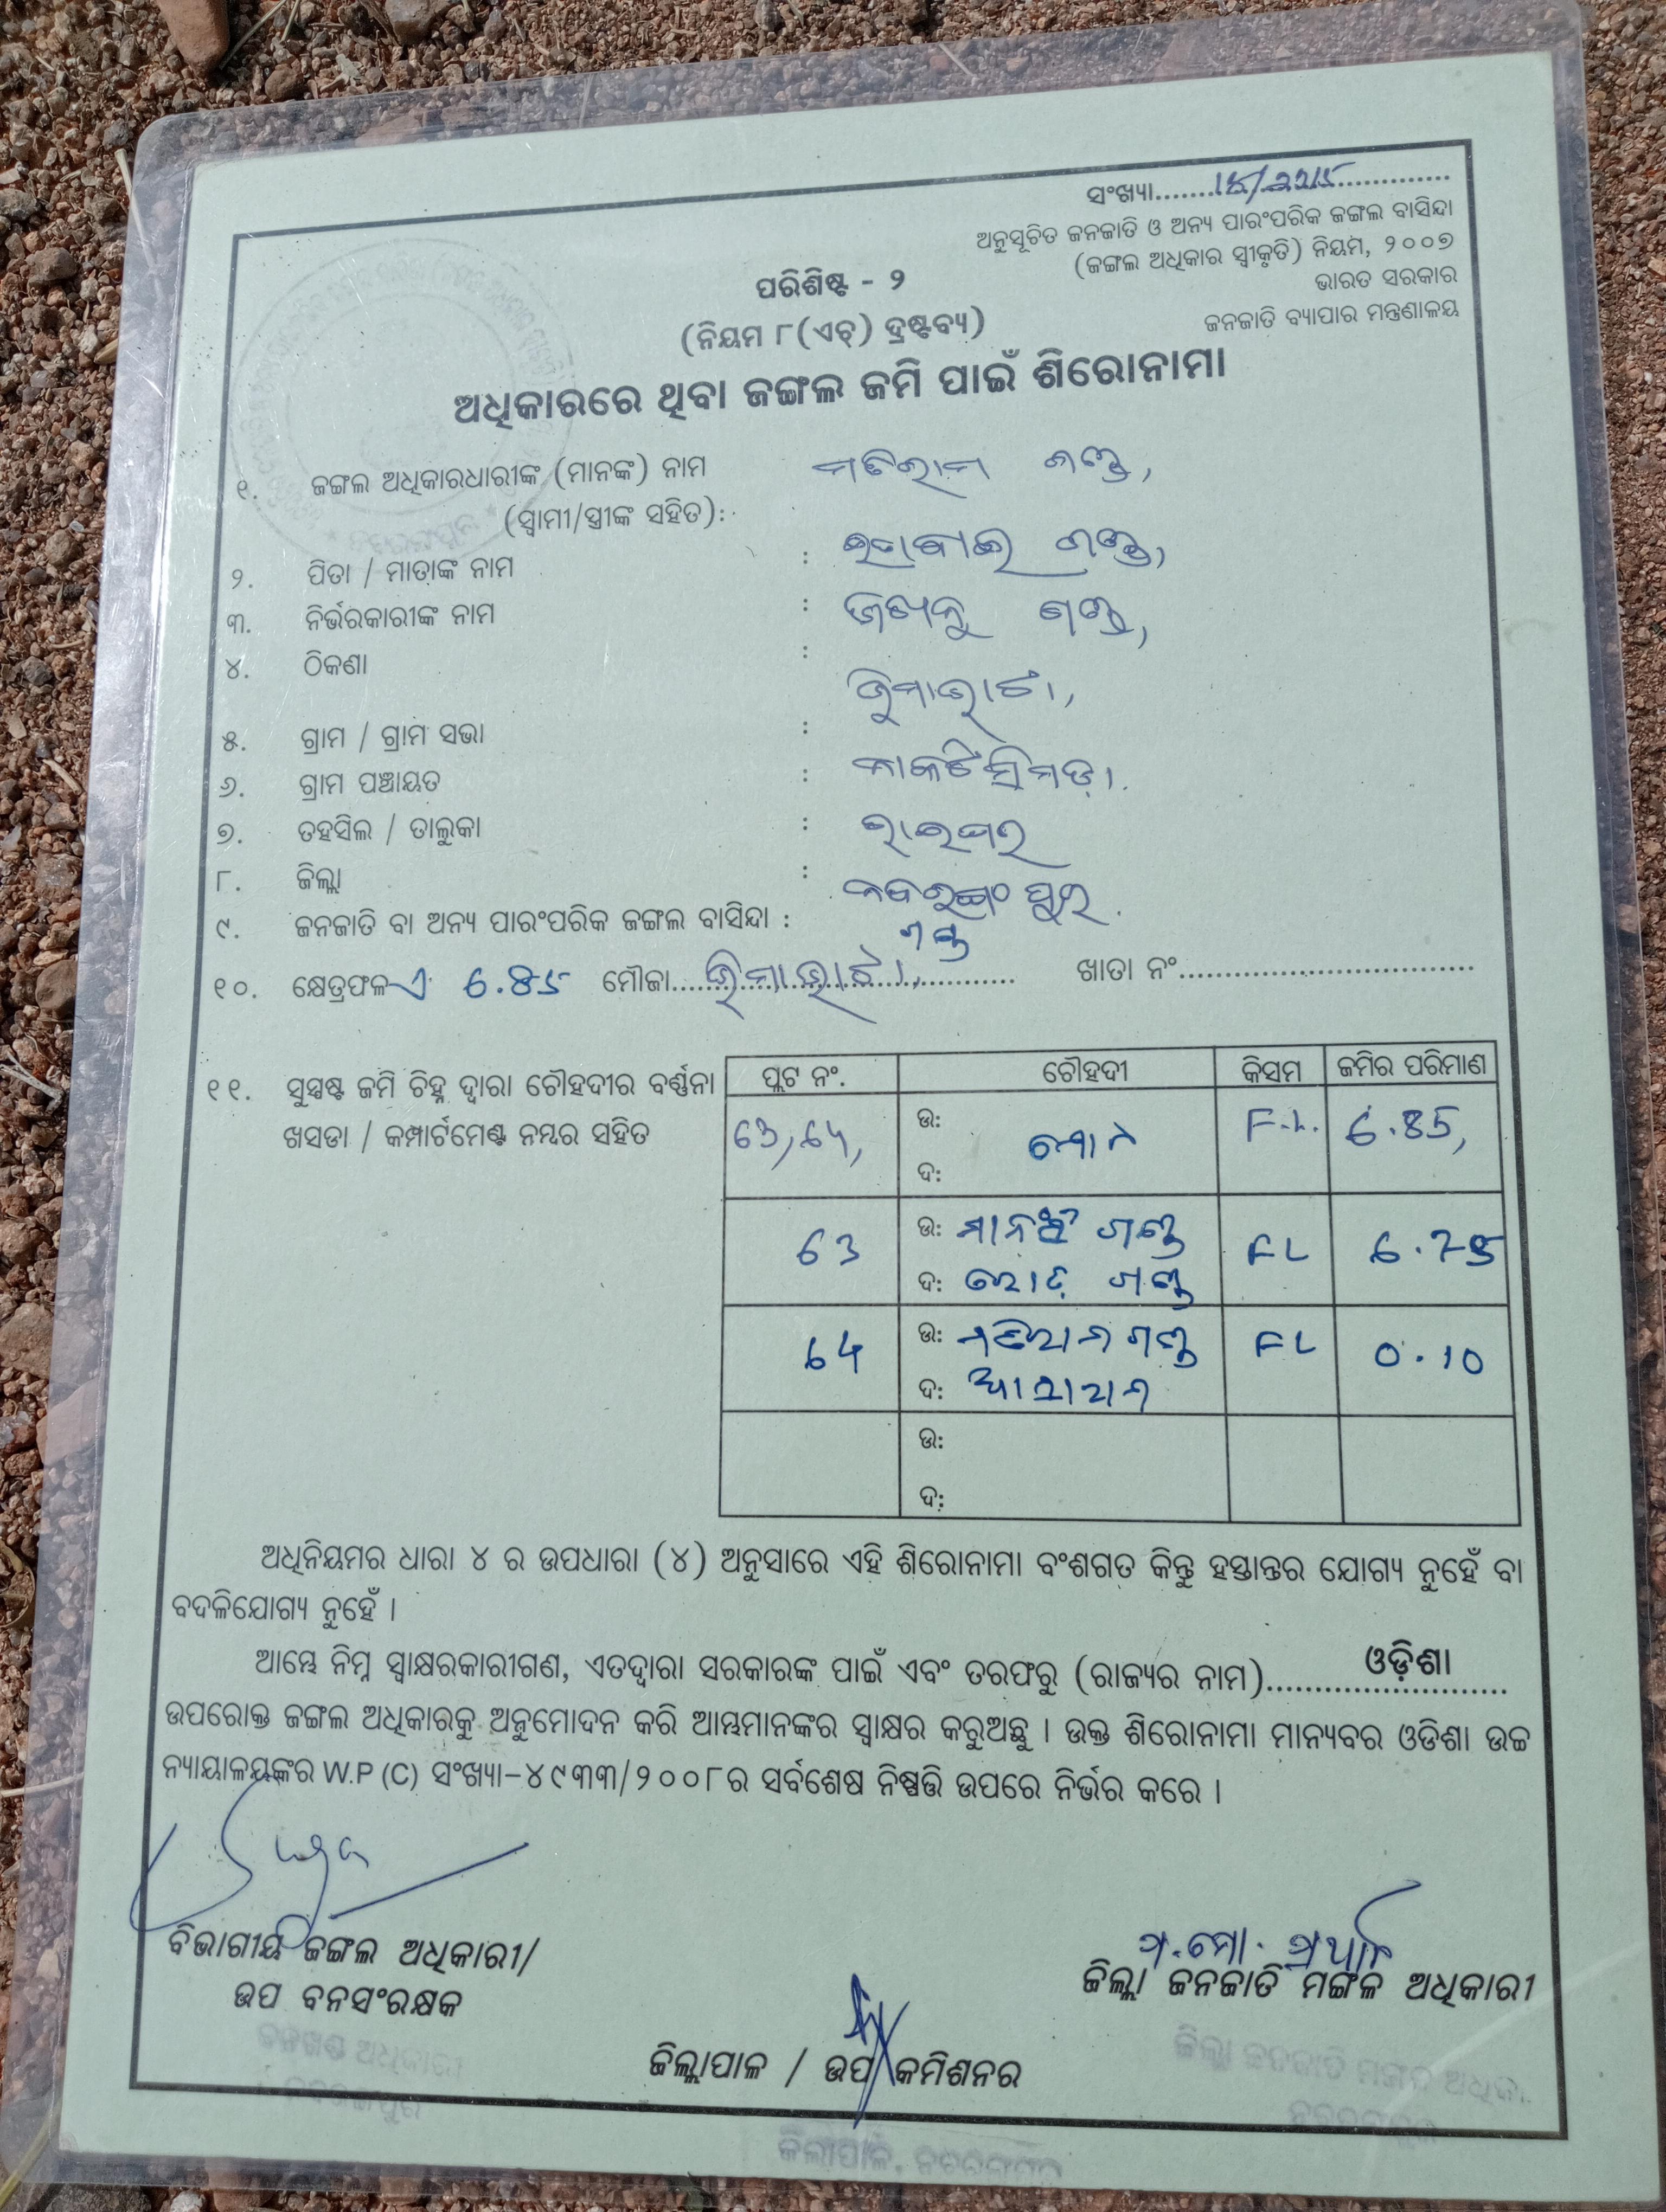 ସଂଖ୍ୟା
ଅନୁସୂଚିତ ଜନଜାତି ଓ ଅନ୍ୟ ପାରଂପରିକ ଜଙ୍ଗଲ ବାସିନ୍ଦା
(ଜଙ୍ଗଲ ଅଧିକାର ସ୍ୱୀକୃତି) ନିୟମ, ୨୦୦୭
ଭାରତ ସରକାର
ଜନଜାତି ବ୍ୟାପାର ମନ୍ତ୍ରଣାଳୟ
ପରିଶିଷ୍ଟ - ୨
(ନିୟମ ୮(ଏଚ୍) ଦ୍ରଷ୍ଟବ୍ୟ)
ଅଧିକାରରେ ଥିବା ଜଙ୍ଗଲ ଜମି ପାଇଁ ଶିରୋନାମା
୧. ଜଙ୍ଗଲ ଅଧିକାରଧାରୀଙ୍କ (ମାନଙ୍କ) ନାମ ମତିରାମ ଗଣ୍ଡ,
(ସ୍ୱାମୀ/ସ୍ତ୍ରୀଙ୍କ ସହିତ):
୨. ପିତା / ମାତାଙ୍କ ନାମ : ଗଣ୍ଡ,
୩. ନିର୍ଭରକାରୀଙ୍କ ନାମ : ଗଣ୍ଡ,
୪. ଠିକଣା :
୫. ଗ୍ରାମ / ଗ୍ରାମ ସଭା :
୬. ଗ୍ରାମ ପଞ୍ଚାୟତ :
୭. ତହସିଲ / ତାଲୁକା : ରାଇଘର
୮. ଜିଲ୍ଲା :
୯. ଜନଜାତି ବା ଅନ୍ୟ ପାରଂପରିକ ଜଙ୍ଗଲ ବାସିନ୍ଦା : ଗଣ୍ଡ
୧୦. କ୍ଷେତ୍ରଫଳ ଏ 6.85 ମୌଜା ଖାତା ନଂ
୧୧. ସୁସ୍ପଷ୍ଟ ଜମି ଚିହ୍ନ ଦ୍ୱାରା ଚୌହଦୀର ବର୍ଣ୍ଣନା
ଖସଡା / କମ୍ପାର୍ଟମେଣ୍ଟ ନମ୍ବର ସହିତ
ପ୍ଲଟ ନଂ. ଚୌହଦୀ କିସମ ଜମିର ପରିମାଣ
63,64, ଉ: F.L. 6.85,
ଦ:
63 ଉ: ଗଣ୍ଡ FL 6.75
ଦ: ଗଣ୍ଡ
64 ଉ: ଗଣ୍ଡ FL 0.10
ଦ:
ଉ:
ଦ:
ଅଧିନିୟମର ଧାରା ୪ ର ଉପଧାରା (୪) ଅନୁସାରେ ଏହି ଶିରୋନାମା ବଂଶଗତ କିନ୍ତୁ ହସ୍ତାନ୍ତର ଯୋଗ୍ୟ ନୁହେଁ ବା
ବଦଳିଯୋଗ୍ୟ ନୁହେଁ ।
ଆମ୍ଭେ ନିମ୍ନ ସ୍ୱାକ୍ଷରକାରୀଗଣ, ଏତଦ୍ୱାରା ସରକାରଙ୍କ ପାଇଁ ଏବଂ ତରଫରୁ (ରାଜ୍ୟର ନାମ) ଓଡ଼ିଶା
ଉପରୋକ୍ତ ଜଙ୍ଗଲ ଅଧିକାରକୁ ଅନୁମୋଦନ କରି ଆମ୍ଭମାନଙ୍କର ସ୍ୱାକ୍ଷର କରୁଅଛୁ । ଉକ୍ତ ଶିରୋନାମା ମାନ୍ୟବର ଓଡିଶା ଉଚ୍ଚ
ନ୍ୟାୟାଳୟଙ୍କର W.P (C) ସଂଖ୍ୟା-୪୯୩୩/୨୦୦୮ର ସର୍ବଶେଷ ନିଷ୍ପତ୍ତି ଉପରେ ନିର୍ଭର କରେ ।
ବିଭାଗୀୟ ଜଙ୍ଗଲ ଅଧିକାରୀ/
ଉପ ବନସଂରକ୍ଷକ
ଜିଲ୍ଲା ଜନଜାତି ମଙ୍ଗଳ ଅଧିକାରୀ
ଜିଲ୍ଲାପାଳ / ଉପ କମିଶନର